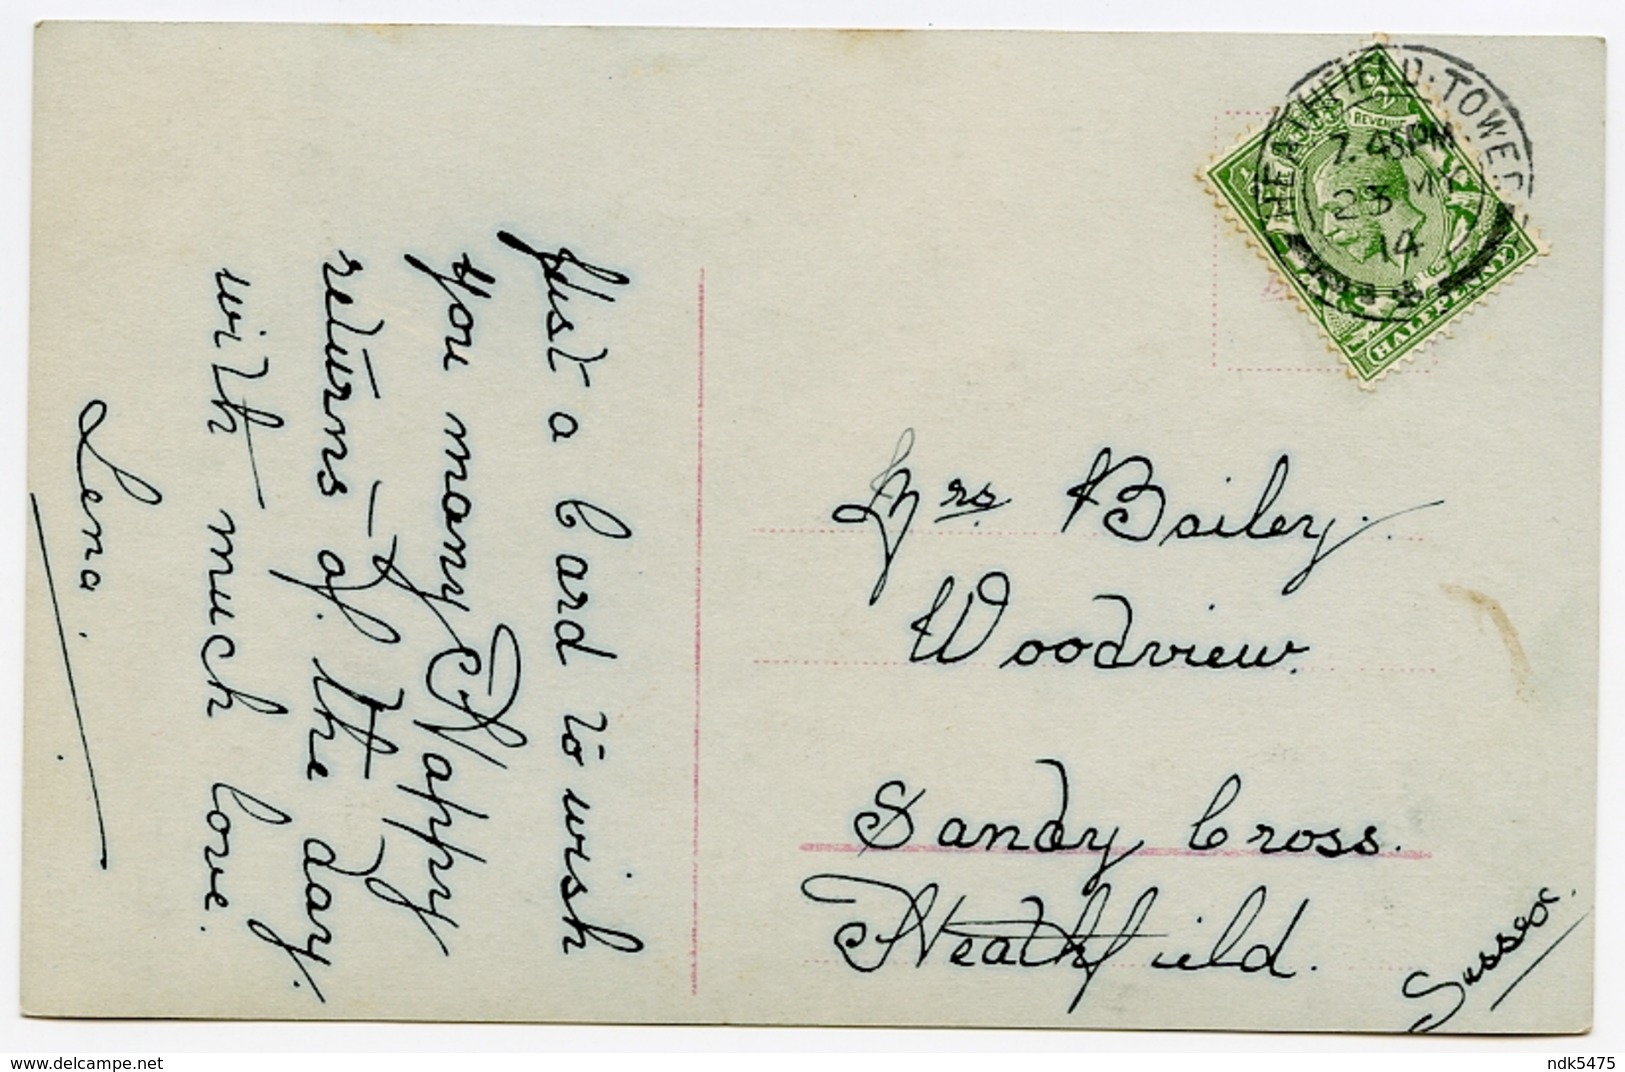 Just a Card to wish
you many Happy
returns of the day.
with much love.
Lena.
Mrs. Bailey.
Woodview.
Sandy Cross.
Heathfield.
Sussex.
HEATHFIELD·TOWER
7.45PM
23 MY
14
REVENUE
HALFPENNY
www.delcampe.net
ndk5475